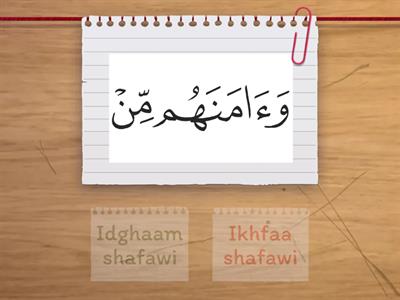 وَءَامَنَهُم مِّنۡ
Idghaam
shafawi
Ikhfaa
shafawi